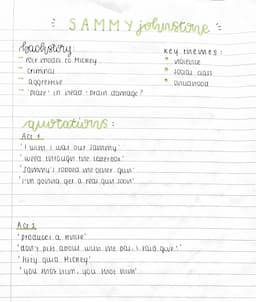 SAMMY johnstone
backstory:
- role model to Mickey
- criminal
- aggressive
- 'plate' in head - brain damage?
key themes:
• violence
• social class
• childhood
quotations:
Act 1
'I wish I was our Sammy'
'weed through the letterbox'
'Sammy's robbed me other gun'
'I'm gonna get a real gun soon'
Act 2
'produces a knife'
'don't piss about with me pal, I said give!'
'hey, quid, Mickey'
'you shot him, you shot him'